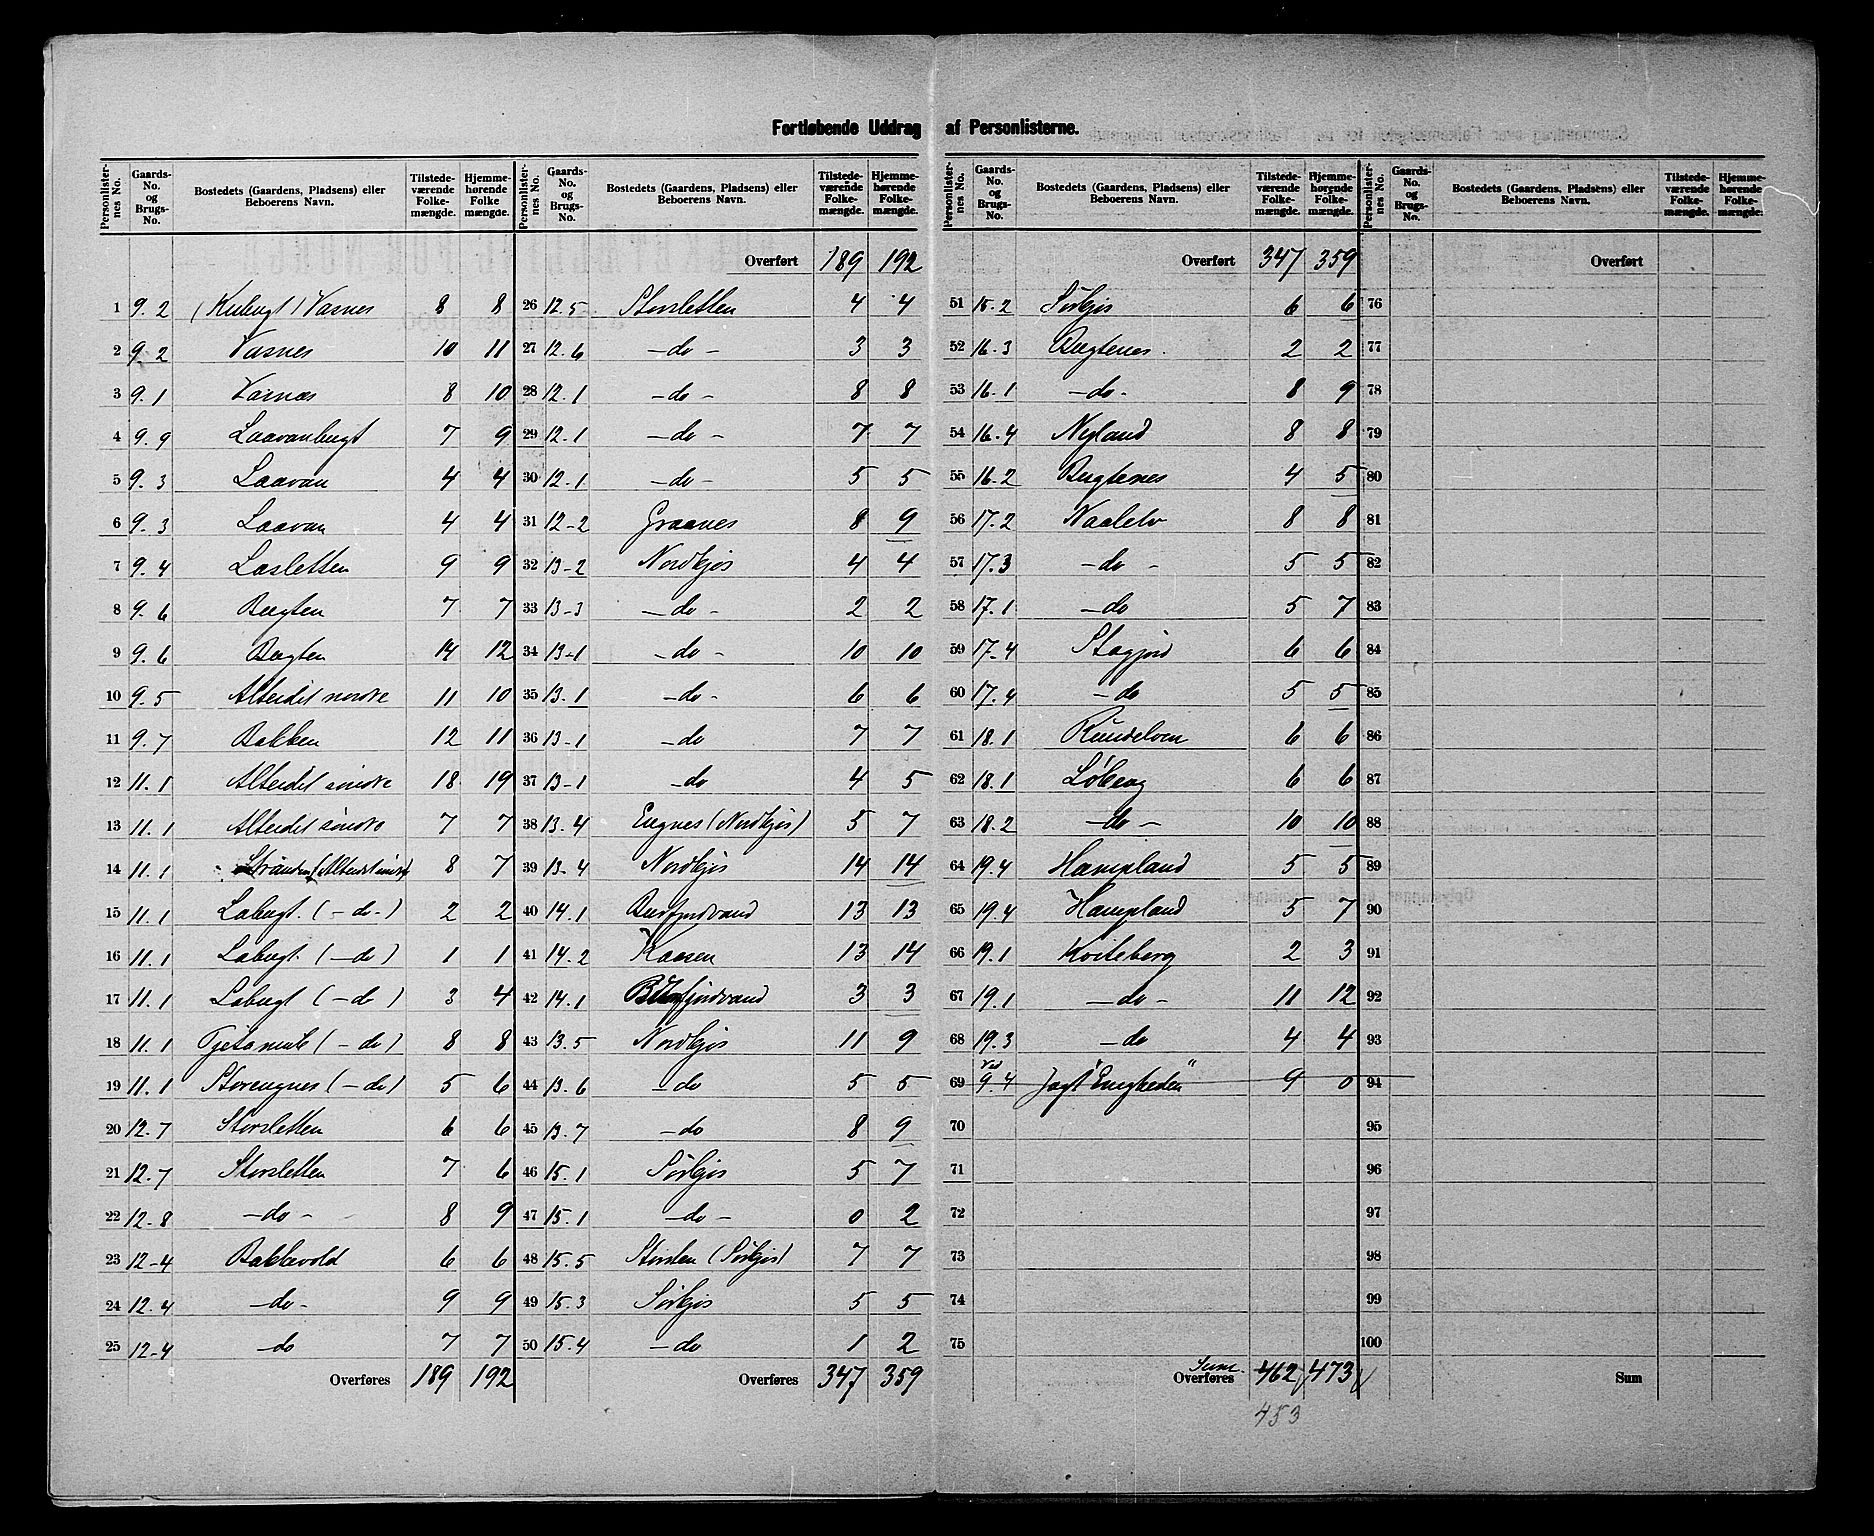 Fortløbende Uddrag af Personlisterne.
Personlisternes No. | Gaards-No. og Brugs-No. | Bostedets (Gaardens, Pladsens) eller Beboerens Navn. | Tilstedeværende Folkemængde. | Hjemmehørende Folkemængde.
1 9.2 (Kubugt) Vasnes 8 8
2 9.2 Vasnes 10 11
3 9.1 Vasnes 8 10
4 9.9 Laavanbugt 7 9
5 9.3 Laavan 4 4
6 9.3 Laavan 4 4
7 9.4 Lasletten 9 9
8 9.6 Bugten 7 7
9 9.6 Bugten 14 12
10 9.5 Alteidet nordre 11 10
11 9.7 Bakken 12 11
12 11.1 Alteidet söndre 18 19
13 11.1 Alteidet söndre 7 7
14 11.1 Stranden (Alteidet söndre) 8 7
15 11.1 Labugt. (-do-) 2 2
16 11.1 Labugt. (-do) 1 1
17 11.1 Labugt (-do) 3 4
18 11.1 Tjetamule (-do) 8 8
19 11.1 Storengnes (-do) 5 6
20 12.7 Storsletten 6 6
21 12.7 Storsletten 7 6
22 12.8 -do- 8 9
23 12-4 Bakkevold 6 6
24 12.4 -do- 9 9
25 12-4 -do 7 7
Overføres 189 192
Personlisternes No. | Gaards-No. og Brugs-No. | Bostedets (Gaardens, Pladsens) eller Beboerens Navn. | Tilstedeværende Folkemængde. | Hjemmehørende Folkemængde.
Overført 189 192
26 12.5 Storsletten 4 4
27 12.6 -do- 3 3
28 12.1 -do- 8 8
29 12.1 -do- 7 7
30 12.1 -do- 5 5
31 12-2 Graanes 8 9
32 13-2 Nordkjos 4 4
33 13-3 -do- 2 2
34 13-1 -do- 10 10
35 13.1 -do- 6 6
36 13-1 -do 7 7
37 13-1 -do 4 5
38 13.4 Engnes (Nordkjos) 5 7
39 13-4 Nordkjos 14 14
40 14.1 Burfjordvand 13 13
41 14.2 Kaasen 13 14
42 14.1 Burfjordvand 3 3
43 13.5 Nordkjos 11 9
44 13.6 -do 5 5
45 13.7 -do 8 9
46 15.1 Sörkjos 5 7
47 15.1 -do- 0 2
48 15.5 Storsten (Sörkjos) 7 7
49 15.3 Sörkjos 5 5
50 15.4 -do 1 2
Overføres 347 359
Personlisternes No. | Gaards-No. og Brugs-No. | Bostedets (Gaardens, Pladsens) eller Beboerens Navn. | Tilstedeværende Folkemængde. | Hjemmehørende Folkemængde.
Overført 347 359
51 15.2 Sörkjos 6 6
52 16.3 Bugtenes. 2 2
53 16.1 -do- 8 9
54 16.4 Nyland 8 8
55 16.2 Bugtenes 4 5
56 17.2 Naalelv 8 8
57 17.3 -do - 5 5
58 17.1 -do 5 7
59 17.4 Stagjord 6 6
60 17.4 -do 5 5
61 18.1 Rundelven 6 6
62 18.1 Löberg 6 6
63 18.2 -do- 10 10
64 19.4 Hampland 5 5
65 19.4 Hampland 5 7
66 19.1 Kviteberg 2 3
67 19.1 -do- 11 12
68 19.3 -do 4 4
69 ved 9.4 Jagt "Enigheden" 9 0
70
71
72
73
74
75
Sum.
Overføres 462 473
453
Personlisternes No. | Gaards-No. og Brugs-No. | Bostedets (Gaardens, Pladsens) eller Beboerens Navn. | Tilstedeværende Folkemængde. | Hjemmehørende Folkemængde.
Overført
76
77
78
79
80
81
82
83
84
85
86
87
88
89
90
91
92
93
94
95
96
97
98
99
100
Sum